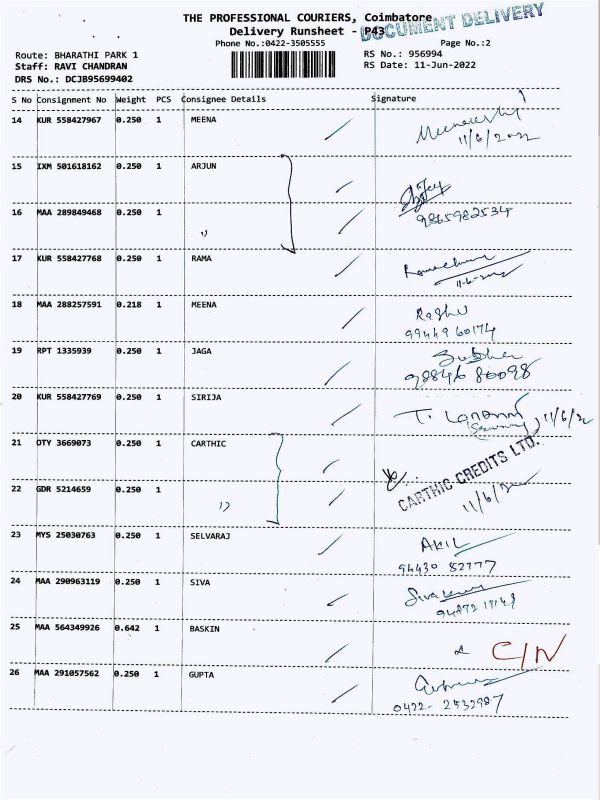 THE PROFESSIONAL COURIERS, Coimbatore
DOCUMENT DELIVERY
Delivery Runsheet - P43
Phone No.:0422-3505555
Page No.:2
Route: BHARATHI PARK 1
RS No.: 956994
Staff: RAVI CHANDRAN
RS Date: 11-Jun-2022
DRS No.: DCJB95699402
S No Consignment No Weight PCS Consignee Details Signature
14 KUR 558427967 0.250 1 MEENA
11/6/2022
15 IXM 501618162 0.250 1 ARJUN
16 MAA 289849468 0.250 1 " 9865982534
17 KUR 558427768 0.250 1 RAMA
11-6-2022
18 MAA 288257591 0.218 1 MEENA Raghu
99449 60174
19 RPT 1335939 0.250 1 JAGA
98846 80098
20 KUR 558427769 0.250 1 SIRIJA 11/6/22
21 OTY 3669073 0.250 1 CARTHIC
CARTHIC CREDITS LTD.
22 GDR 5214659 0.250 1 " 11/6/22
23 MYS 25030763 0.250 1 SELVARAJ AKIL
94430 82777
24 MAA 290963119 0.250 1 SIVA Sivakum
25 MAA 564349926 0.642 1 BASKIN C/N
26 MAA 291057562 0.250 1 GUPTA
0422- 2532987